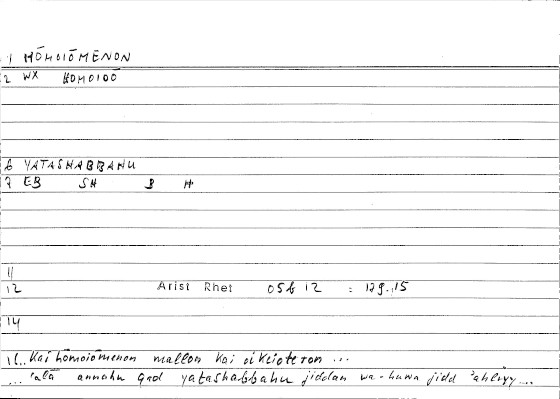 1 HŌMOIŌMENON
2 WX HOMOIOŌ
6 YATASHABBAHU
7 EB SH B H
11
12 Arist Rhet 05b 12 : 129.15
14
16.. Kai hōmoiōmenon mallon kai oikeioteron ...
... ʿalā annahu qad yatashabbahu jiddan wa-huwa jidd ʾahliyy ...